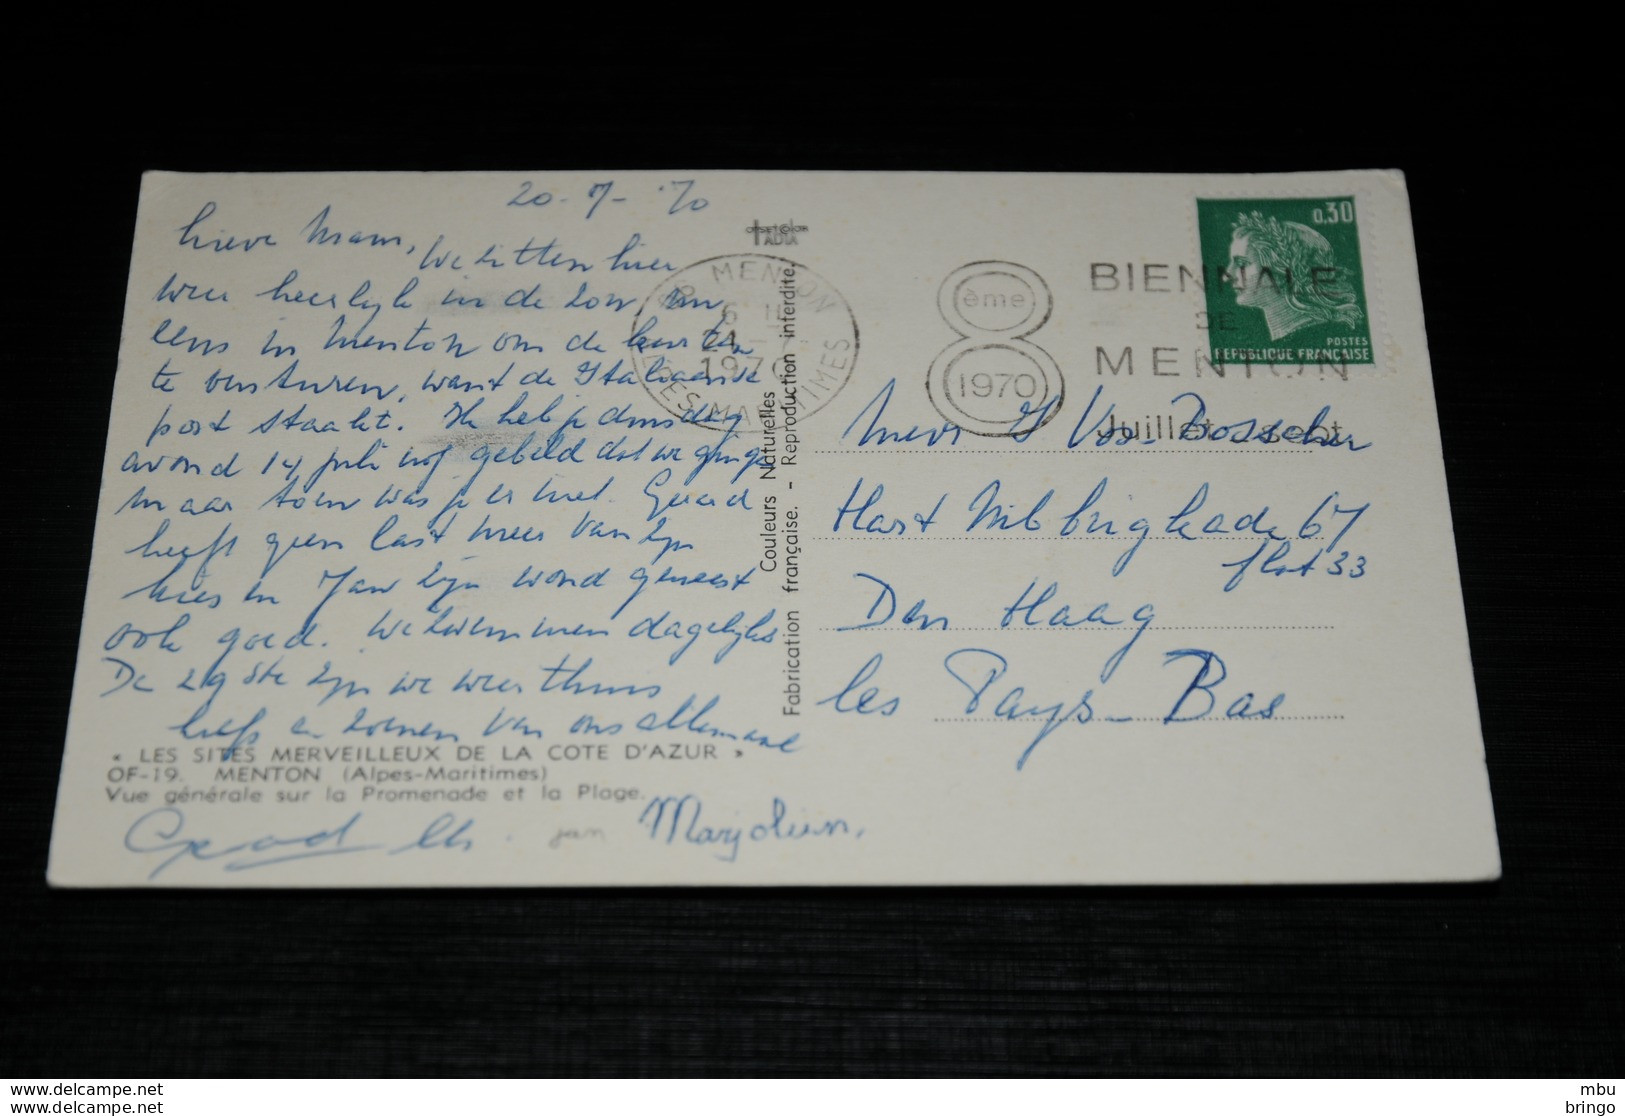 20-7-'70
Lieve Mam,
We zitten hier
weer heerlijk in de zon, en
eens in Menton om de kaarten
te versturen, want de Italiaanse
post staakt. Ik heb je dinsdag
avond 14 juli nog gebeld dat we
maar toen was je er niet. Gerard
heeft geen last meer van zijn
kies en zijn wond geneest
ook goed. We zwemmen dagelijks
De 29ste zijn we weer thuis
liefs en zoenen van ons allemaal
« LES SITES MERVEILLEUX DE LA COTE D'AZUR »
OF-19. MENTON (Alpes-Maritimes)
Vue générale sur la Promenade et la Plage.
jan Marjolein.
OFFSET COLOR
TADIA
Couleurs Naturelles
Fabrication française. - Reproduction interdite.
MENTON
1970
ALPES MARITIMES
8ème
1970
BIENNALE
DE
MENTON
Juillet sept.
0,30
POSTES
REPUBLIQUE FRANÇAISE
Mevr Vos
Hart Nibbrigkade 67
flat 33
Den Haag
les Pays-Bas
www.delcampe.net
www.delcampe.net
mbu
bringo